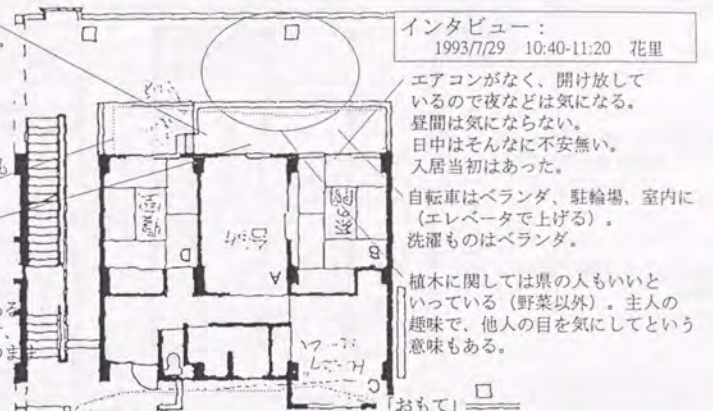 インタビュー：
1993/7/29 10:40-11:20 花里
エアコンがなく、開け放して
いるので夜などは気になる。
昼間は気にならない。
日中はそんなに不安無い。
入居当初はあった。
自転車はベランダ、駐輪場、室内に
（エレベータで上げる）。
洗濯ものはベランダ。
植木に関しては県の人もいいと
いっている（野菜以外）。主人の
趣味で、他人の目を気にしてという
意味もある。
A
B
C
D
「おもて」